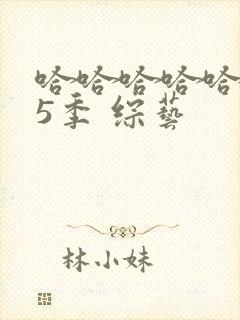 哈哈哈哈哈
5季 综藝
林小妹